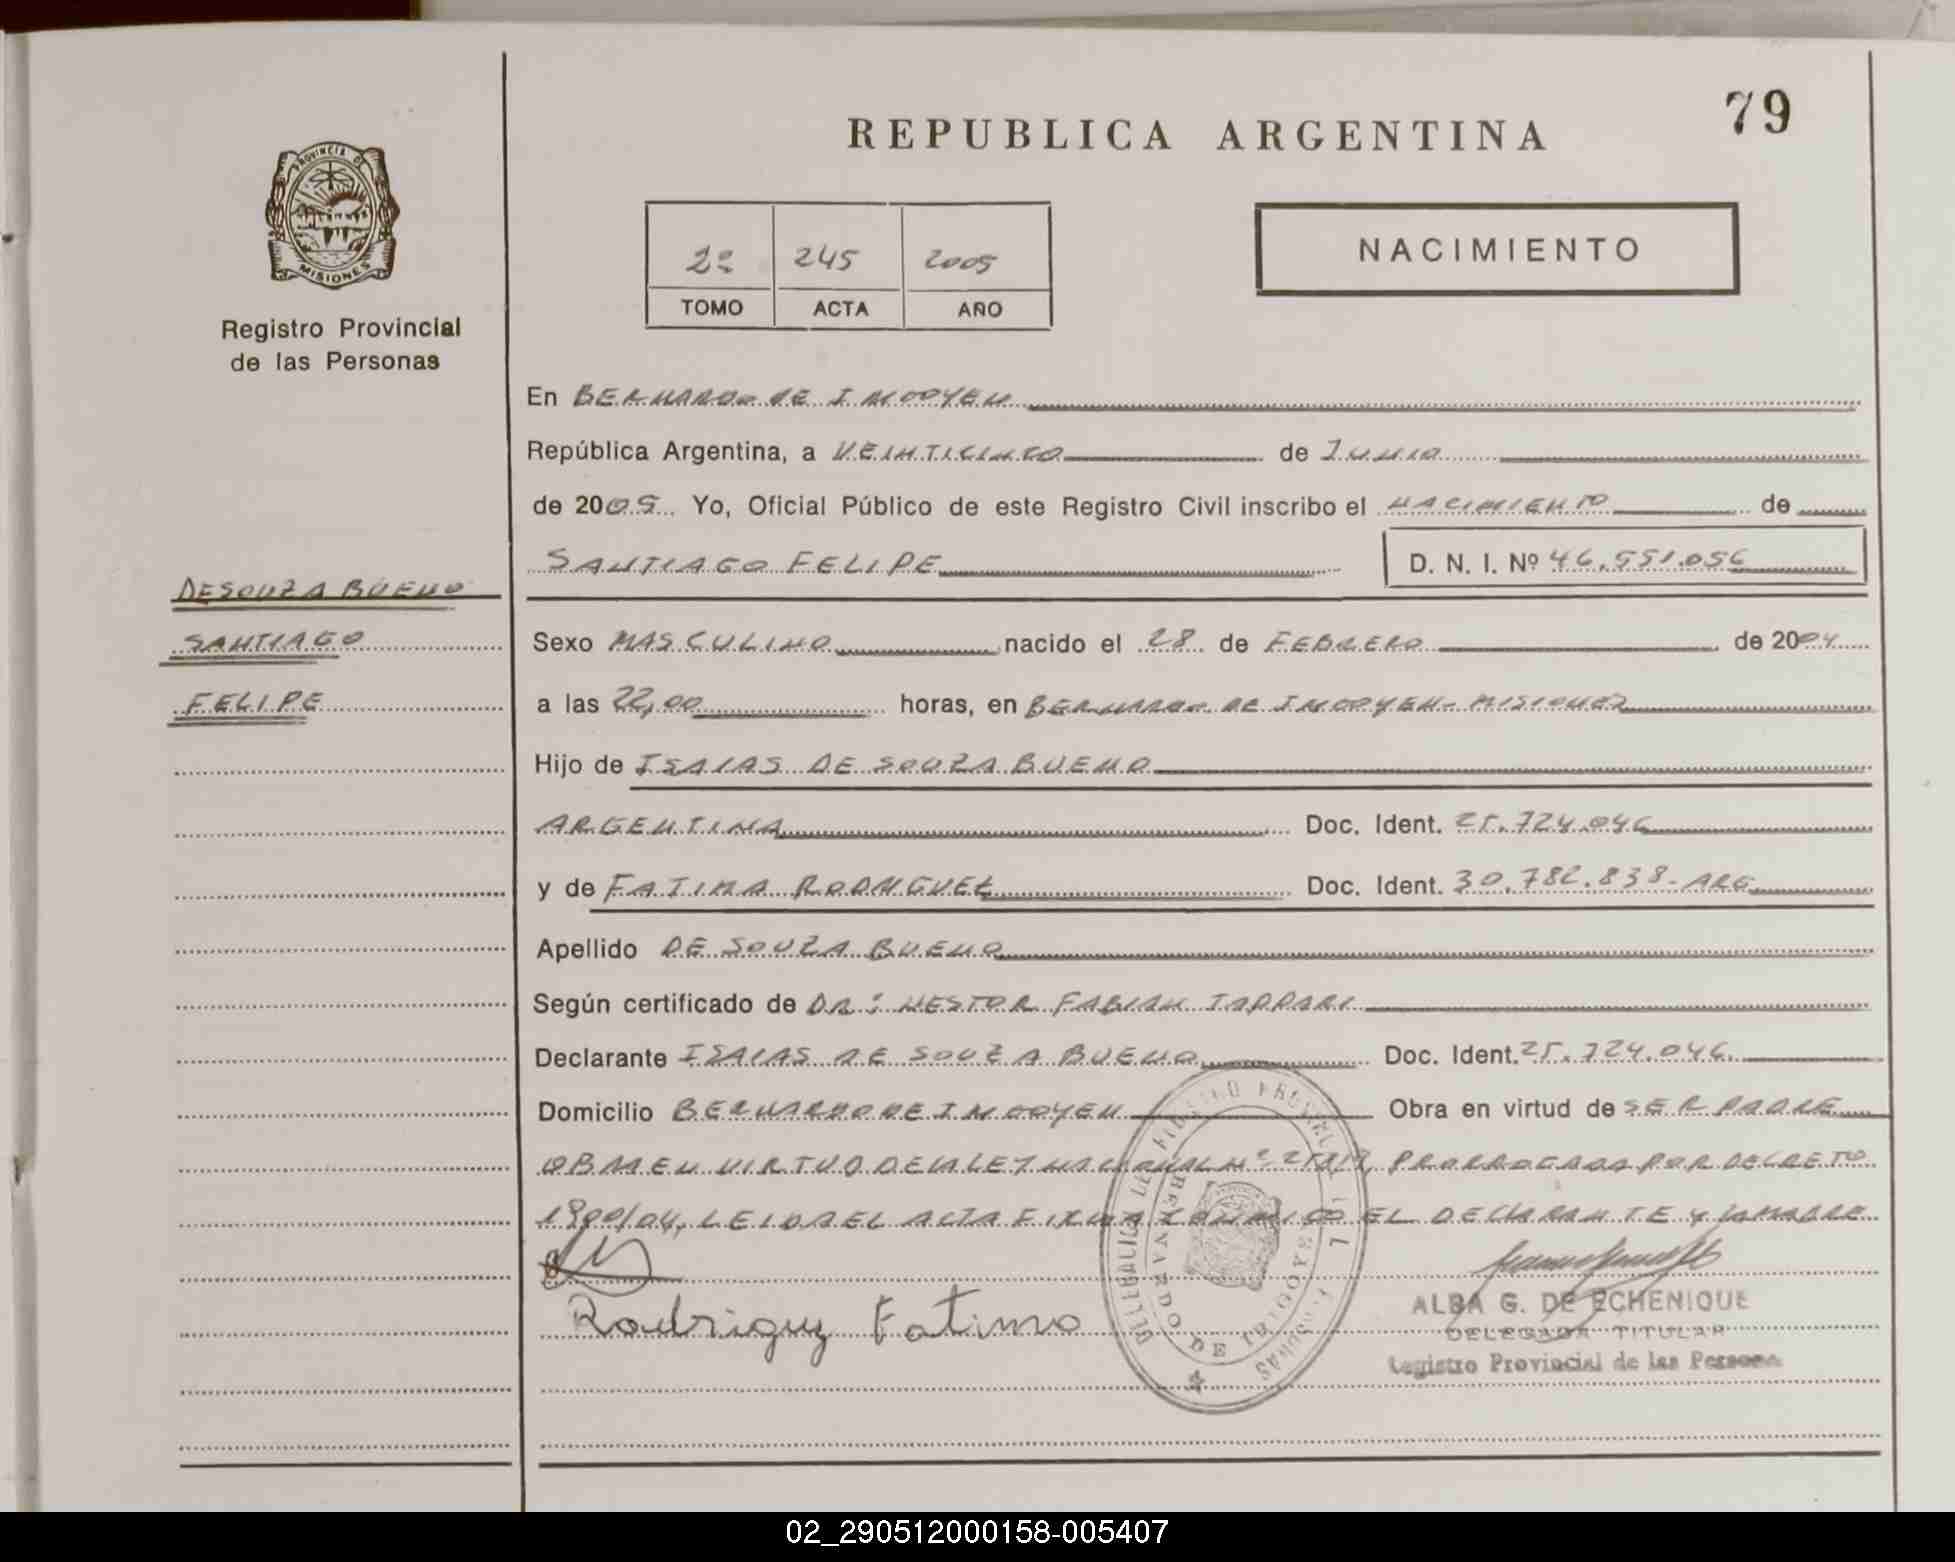 79
REPUBLICA ARGENTINA
PROVINCIA DE
MISIONES
Registro Provincial
de las Personas
2º 245 2005
TOMO ACTA AÑO
NACIMIENTO
En BERNARDO DE IRIGOYEN
República Argentina, a VEINTICINCO de JUNIO
de 2005 Yo, Oficial Público de este Registro Civil inscribo el NACIMIENTO de
SANTIAGO FELIPE D. N. I. Nº 46.551.056
DE SOUZA BUENO
SANTIAGO
FELIPE
Sexo MASCULINO nacido el 28 de FEBRERO de 2004
a las 22,00 horas, en BERNARDO DE IRIGOYEN- MISIONES
Hijo de ISAIAS DE SOUZA BUENO
ARGENTINA Doc. Ident. 25.724.046
y de FATIMA RODRIGUEZ Doc. Ident. 30.782.838- ARG
Apellido DE SOUZA BUENO
Según certificado de DR: NESTOR FABIAN TAPPARI
Declarante ISAIAS DE SOUZA BUENO Doc. Ident. 25.724.046
Domicilio BERNARDO DE IRIGOYEN Obra en virtud de SER PADRE
OBRA EN VIRTUD DE LA LEY NACIONAL Nº PRORROGADA POR DECRETO
1900/04, LEIDA EL ACTA FIRMA CONMIGO EL DECLARANTE y LA MADRE
Rodriguez Fatima
BERNARDO DE IRIGOYEN
ALBA G. DE ECHENIQUE
DELEGADA TITULAR
Registro Provincial de las Personas
02_290512000158-005407